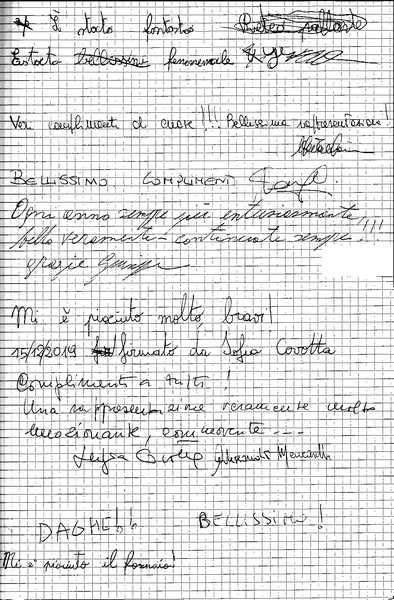 È stato fantastico
bellissimo fenomenale
Veri complimenti di cuore!!! Bellissima rappresentazione!
BELLISSIMO COMPLIMENTI
Ogni anno sempre più entusiasmante
bello veramente - continuate sempre!!!
grazie
Mi è piaciuto molto, bravi!
15/12/2019 firmato da Sofia Covotta
Complimenti a tutti!
Una rappresentazione veramente molto
emozionante, commovente ....
DAGHE
BELLISSIMO!
Mi è piaciuto il fornaio!